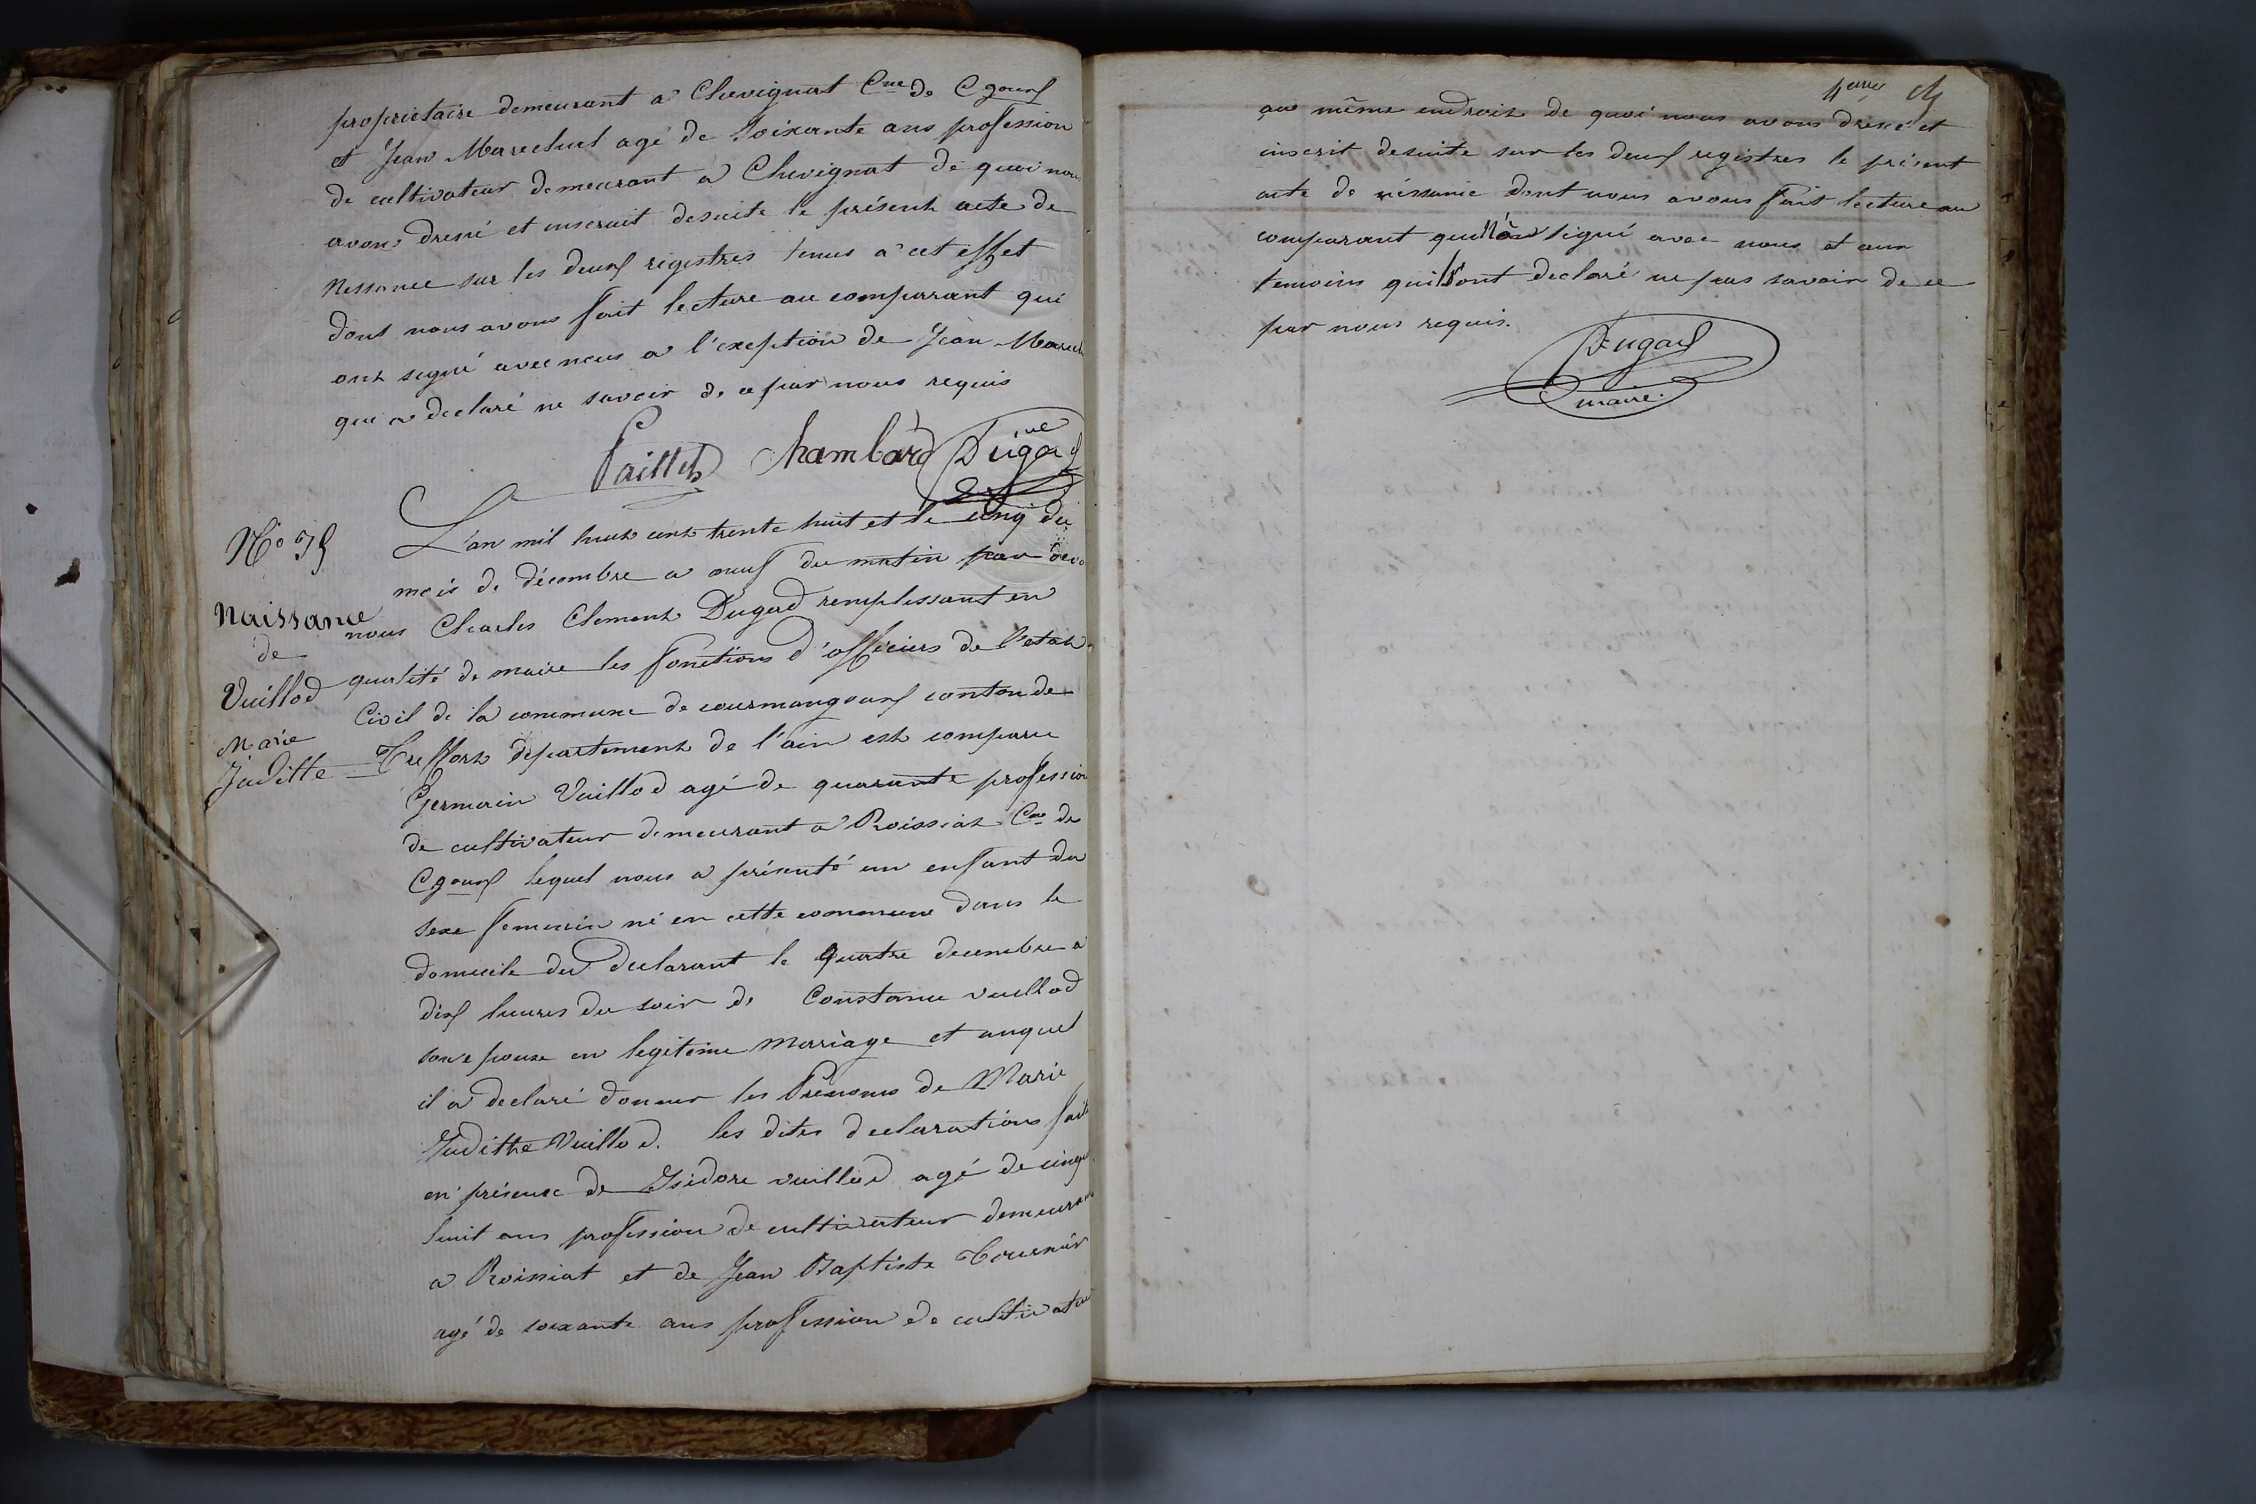 propriétaire demeurant a Chevignat Cne de Cgoux
et Jean Marechal agé de soixante ans profession
de cultivateur demeurant a Chevignat de quoi nous
avons dressé et inscrit desuite le présent acte de
Nessance sur les deux régistres tenus à cet effet
dont nous avons fait lecture au comparant qui
ont signé avec nous a l'exeption de Jean Marech
qui a declaré ne savoir de ce par nous requis
Paillet Chambard Dugad
No 75
Naissance
de
Vuillod
Marie
Juditte
L'an mil huit cent trente huit et le cinq du
mois de décembre a neuf du matin par deva
nous Charles Clement Dugad remplissant en
qualité de maire les fonctions d'officiers de l'etat
Civil de la commune de courmangoux canton de
Treffort département de l'ain est comparu
Germain Vuillod agé de quarante profession
de cultivateur demeurant a Roissiat Cne de
Cgoux lequel nous a présenté un enfant du
sexe femenin né en cette commune dans le
domicile du declarant le quatre decembre a
dix heures du soir de Constance vuillod
son epouse en legitime Marriage et auquel
il a declaré donner les Prénoms de Marie
Juditte Vuillod. les dites declarations fait
en présence de Isidore vuillod agé de cinqu
huit ans profession de cultivateur demeuran
a Roissiat et de Jean Baptiste Tournier
agé de soixante ans profession de cultivateu
au même endroit de quoi nous avons dressé et
inscrit desuite sur les deux registres le présent
acte de néssance dont nous avons fait lecture au
comparant qui n'a signé avec nous et aux
temoins qui ont declaré ne pas savoir de ce
par nous requis.
Dugad
maire.